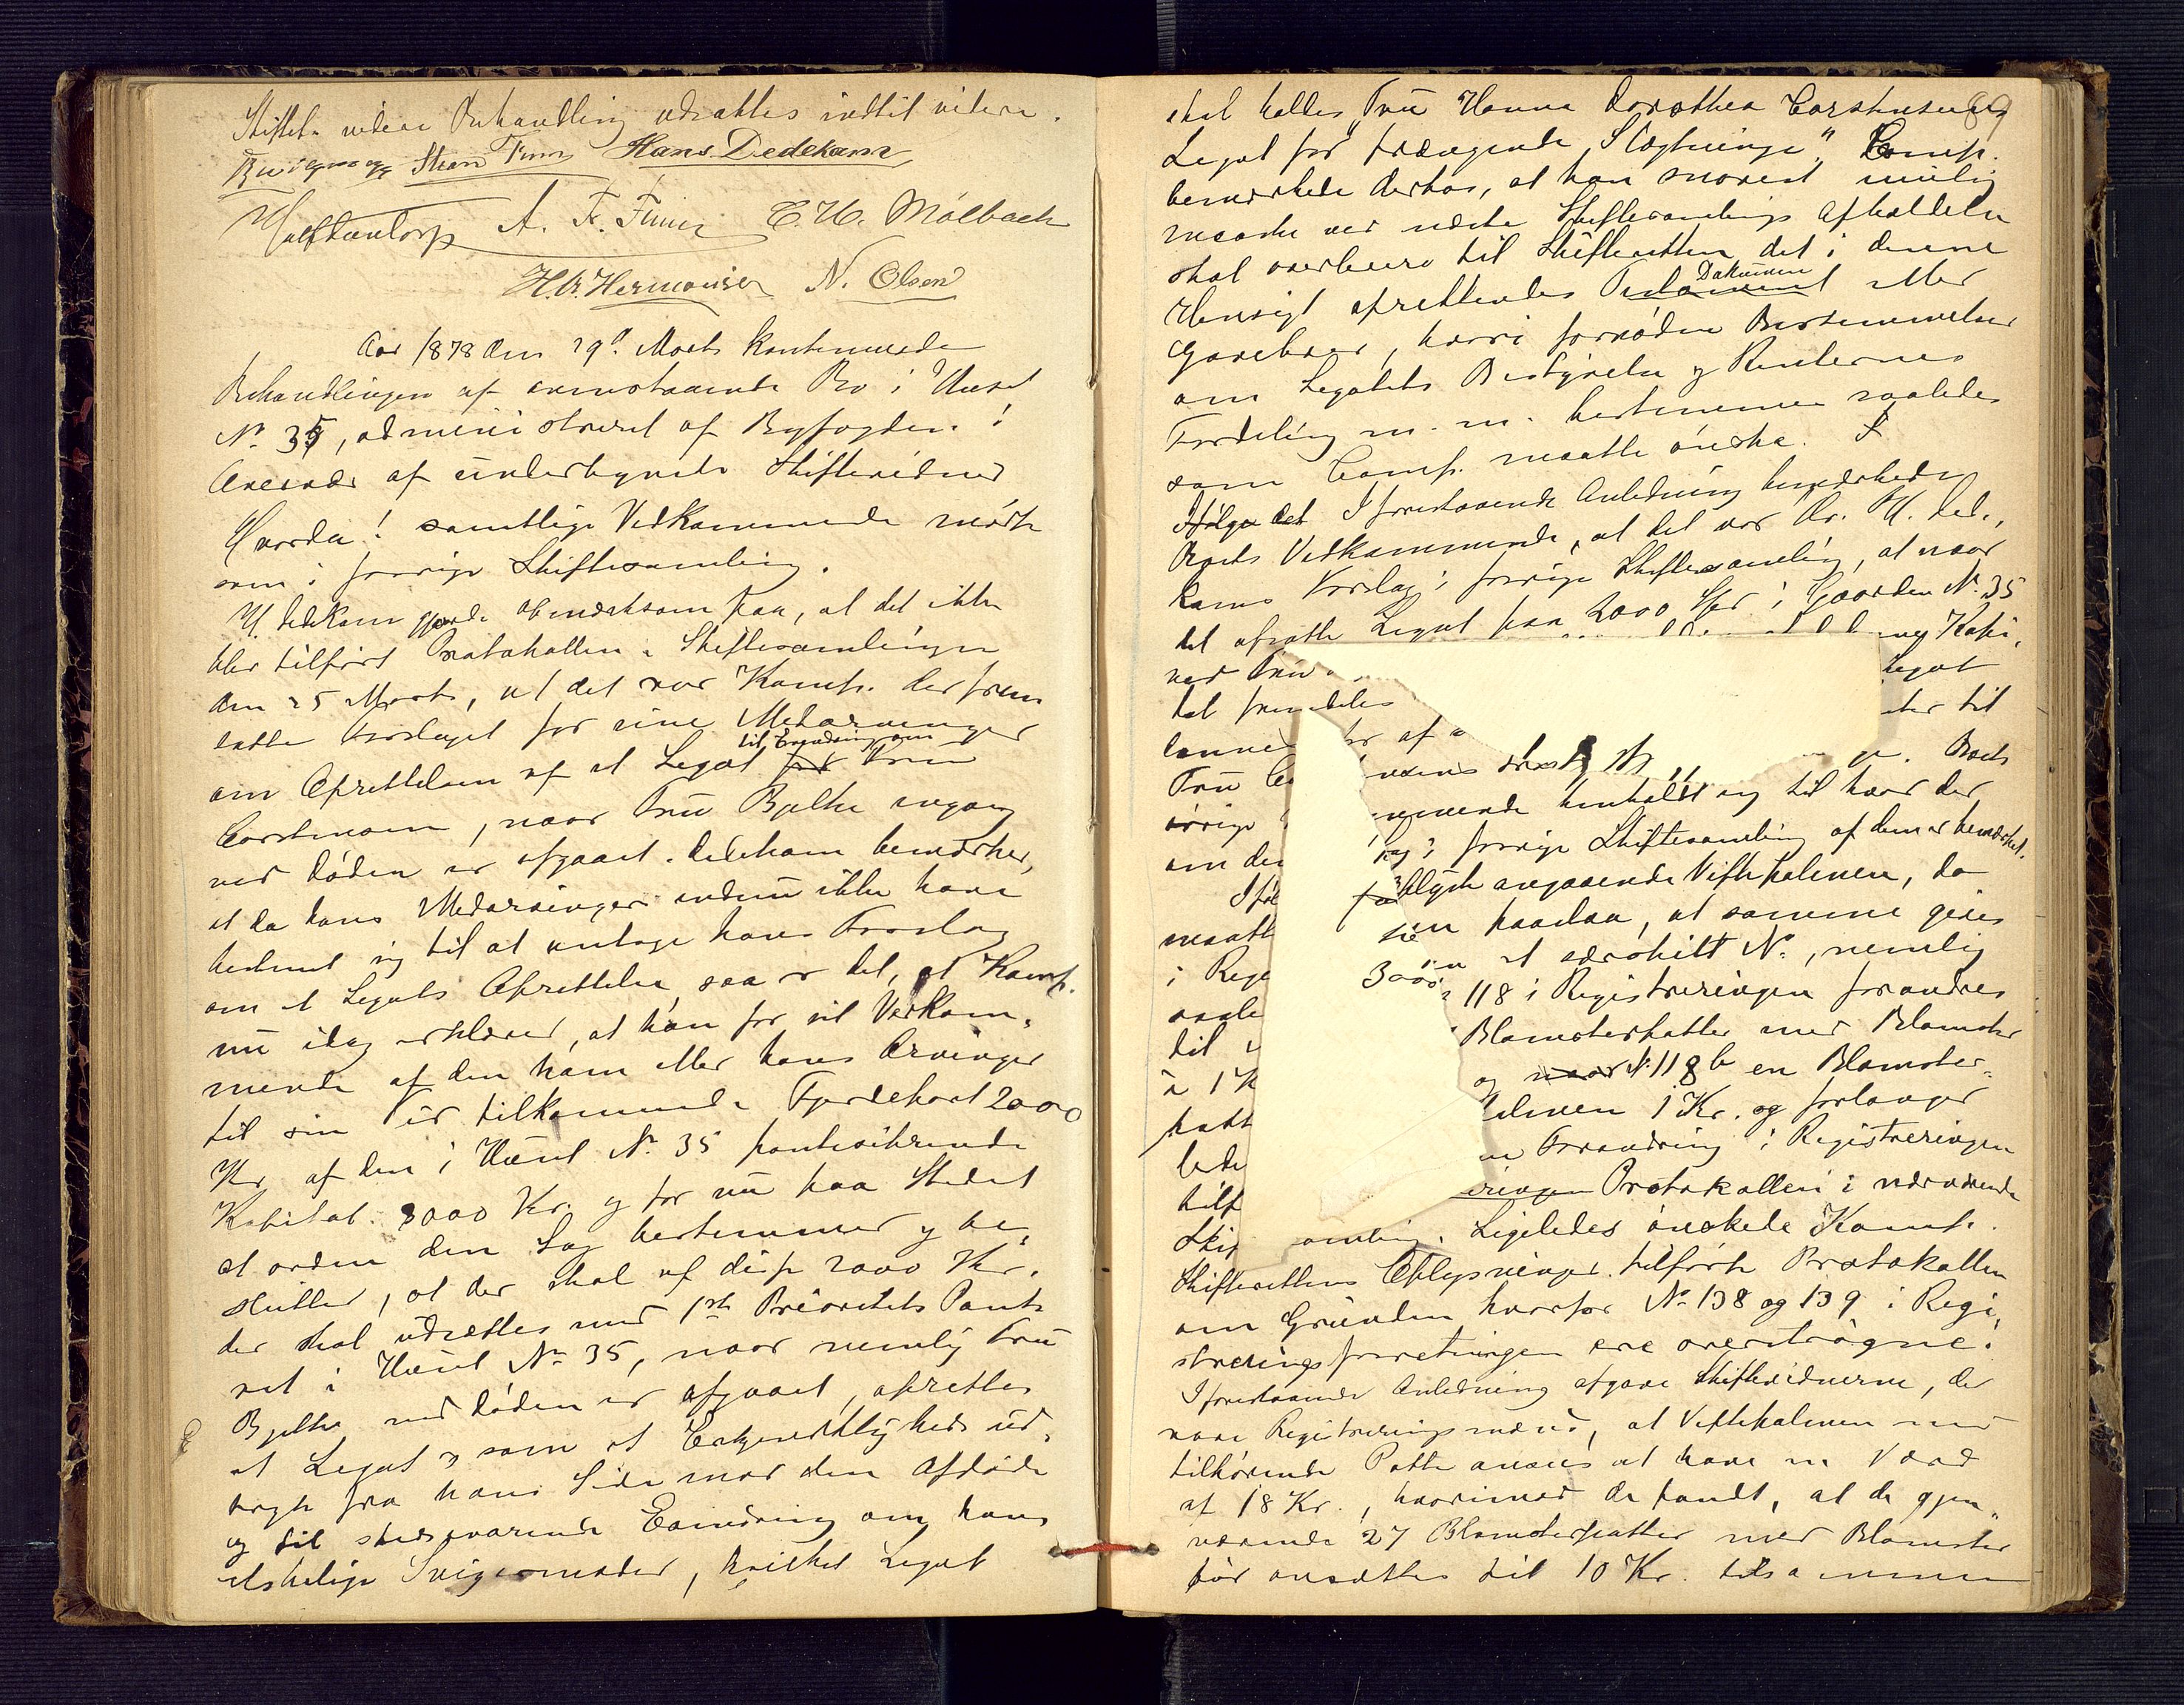 Skiftets videre Behandling udsattes indtil videre.
Thran Finn Hans Dedekam
A. F. Finn C. H. Mölbach
H. Chr. Hermansen N. Olsen
Aar 1878 den 29d Marts kontinuerede
Behandlingen af ovenstaaende Bo i Huset
No 35, administreret af Byfogden i
Overvær af undertegnede Skiftevidner
Hvorda! samtlige Vedkommende mødte
som i forrige Skiftesamling.
H. Dedekam gjorde opmærksom paa, at det ikke
blev tilført Protokollen i Skiftesamlingen
den 25 Marts, at det var Komp. der frem
satte Forslaget for sine Medarvinger
om Oprettelsen af et Legat for til Erindring om Fru
Carstensen, naar Fru Bjelke engang
ved Døden er afgaaet. Dedekam bemærker,
at da hans Medarvinger endnu ikke have
bestemt sig til at antage hans Forslag
om et Legats Oprettelse, saa er det, at Komp.
nu idag erklærer, at han for sit Vedkom¬
mende af den ham eller hans Arvinger
til sin Tid tilkommende Fjerdepart 2000
Kr. af den i Huset No 35 panteheftende
Kapital 8000 Kr. og for nu paa Stedet
at ordne den Sag bestemmer og be¬
slutter, at der skal af disse 2000 Kr.
der skal udsættes mod 1ste Prioritets Pante
ret i Huset No 35, naar nemlig Fru
Bjelke ved Døden er afgaaet, oprettes
et Legat som et Erkjendtligheds ud¬
tryk fra hans Side mod den Afdøde
og til stedsevarende Erindring om hans
elskelige Svigermoder, hvilket Legat
89
skal kaldes "Fru Hanna Dorothea Carstensens
Legat for trængende Slægtninge". Comp.
bemærkede derhos, at han snarest mulig
maaske ved næste Skiftesamlings Afholdelse
skal overlevere til Skifteretten det i denne
Hensigt oprettendes Testament Dokument eller
Gavebrev, hvori fornødne Bestemmelser
om Legatets Bestyrelse og Renternes
Fordeling m. m. bestemmes saaledes
som Comp. maatte ønske.
Ifølge det I forestaaende Anledning bemærkede
Boets Vedkommende, at det var Hr. H. Dede¬
kams Forslag i forrige Skiftesamling, at naar
det opsatte Legat paa 2000 Kr i Gaarden No 35
ved Fru Kapi¬
tal fremdeles Legat
danne af til
Fru Boets
øvrige henholdt sig til hvad der
om den i forrige Skiftesamling af dem er bemærket.
angaaende Viftepalmen, da
maatt paastaa, at samme gives
i Reg et særskilt No, nemlig
3000 118 i Registreringen forandres
til Blomsterpotter med Blomster
a 1 K og naar No 118 b en Blomster¬
palmen 1 Kr. og forlanger
Forandring i Registreringen
tilf Protokollen i nærværende
Skif samling. Ligeledes ønskede Komp.
Skifterettens Oplysninger tilførte Protokollen
om Grunden hvorfor No 138 og 139 i Regi¬
streringsforretningen ere overstrøgne.
I forestaaende Anledning afgave Skiftevidnerne, der
vare Registreringsmænd, at Viftepalmen med
tilhørende Potte ansaaes at have en Værd
af 18 Kr., hvorimod de fandt, at de gjen¬
værende 27 Blomsterpotter med Blomster
bør ansættes til 10 Kr. tilsammen